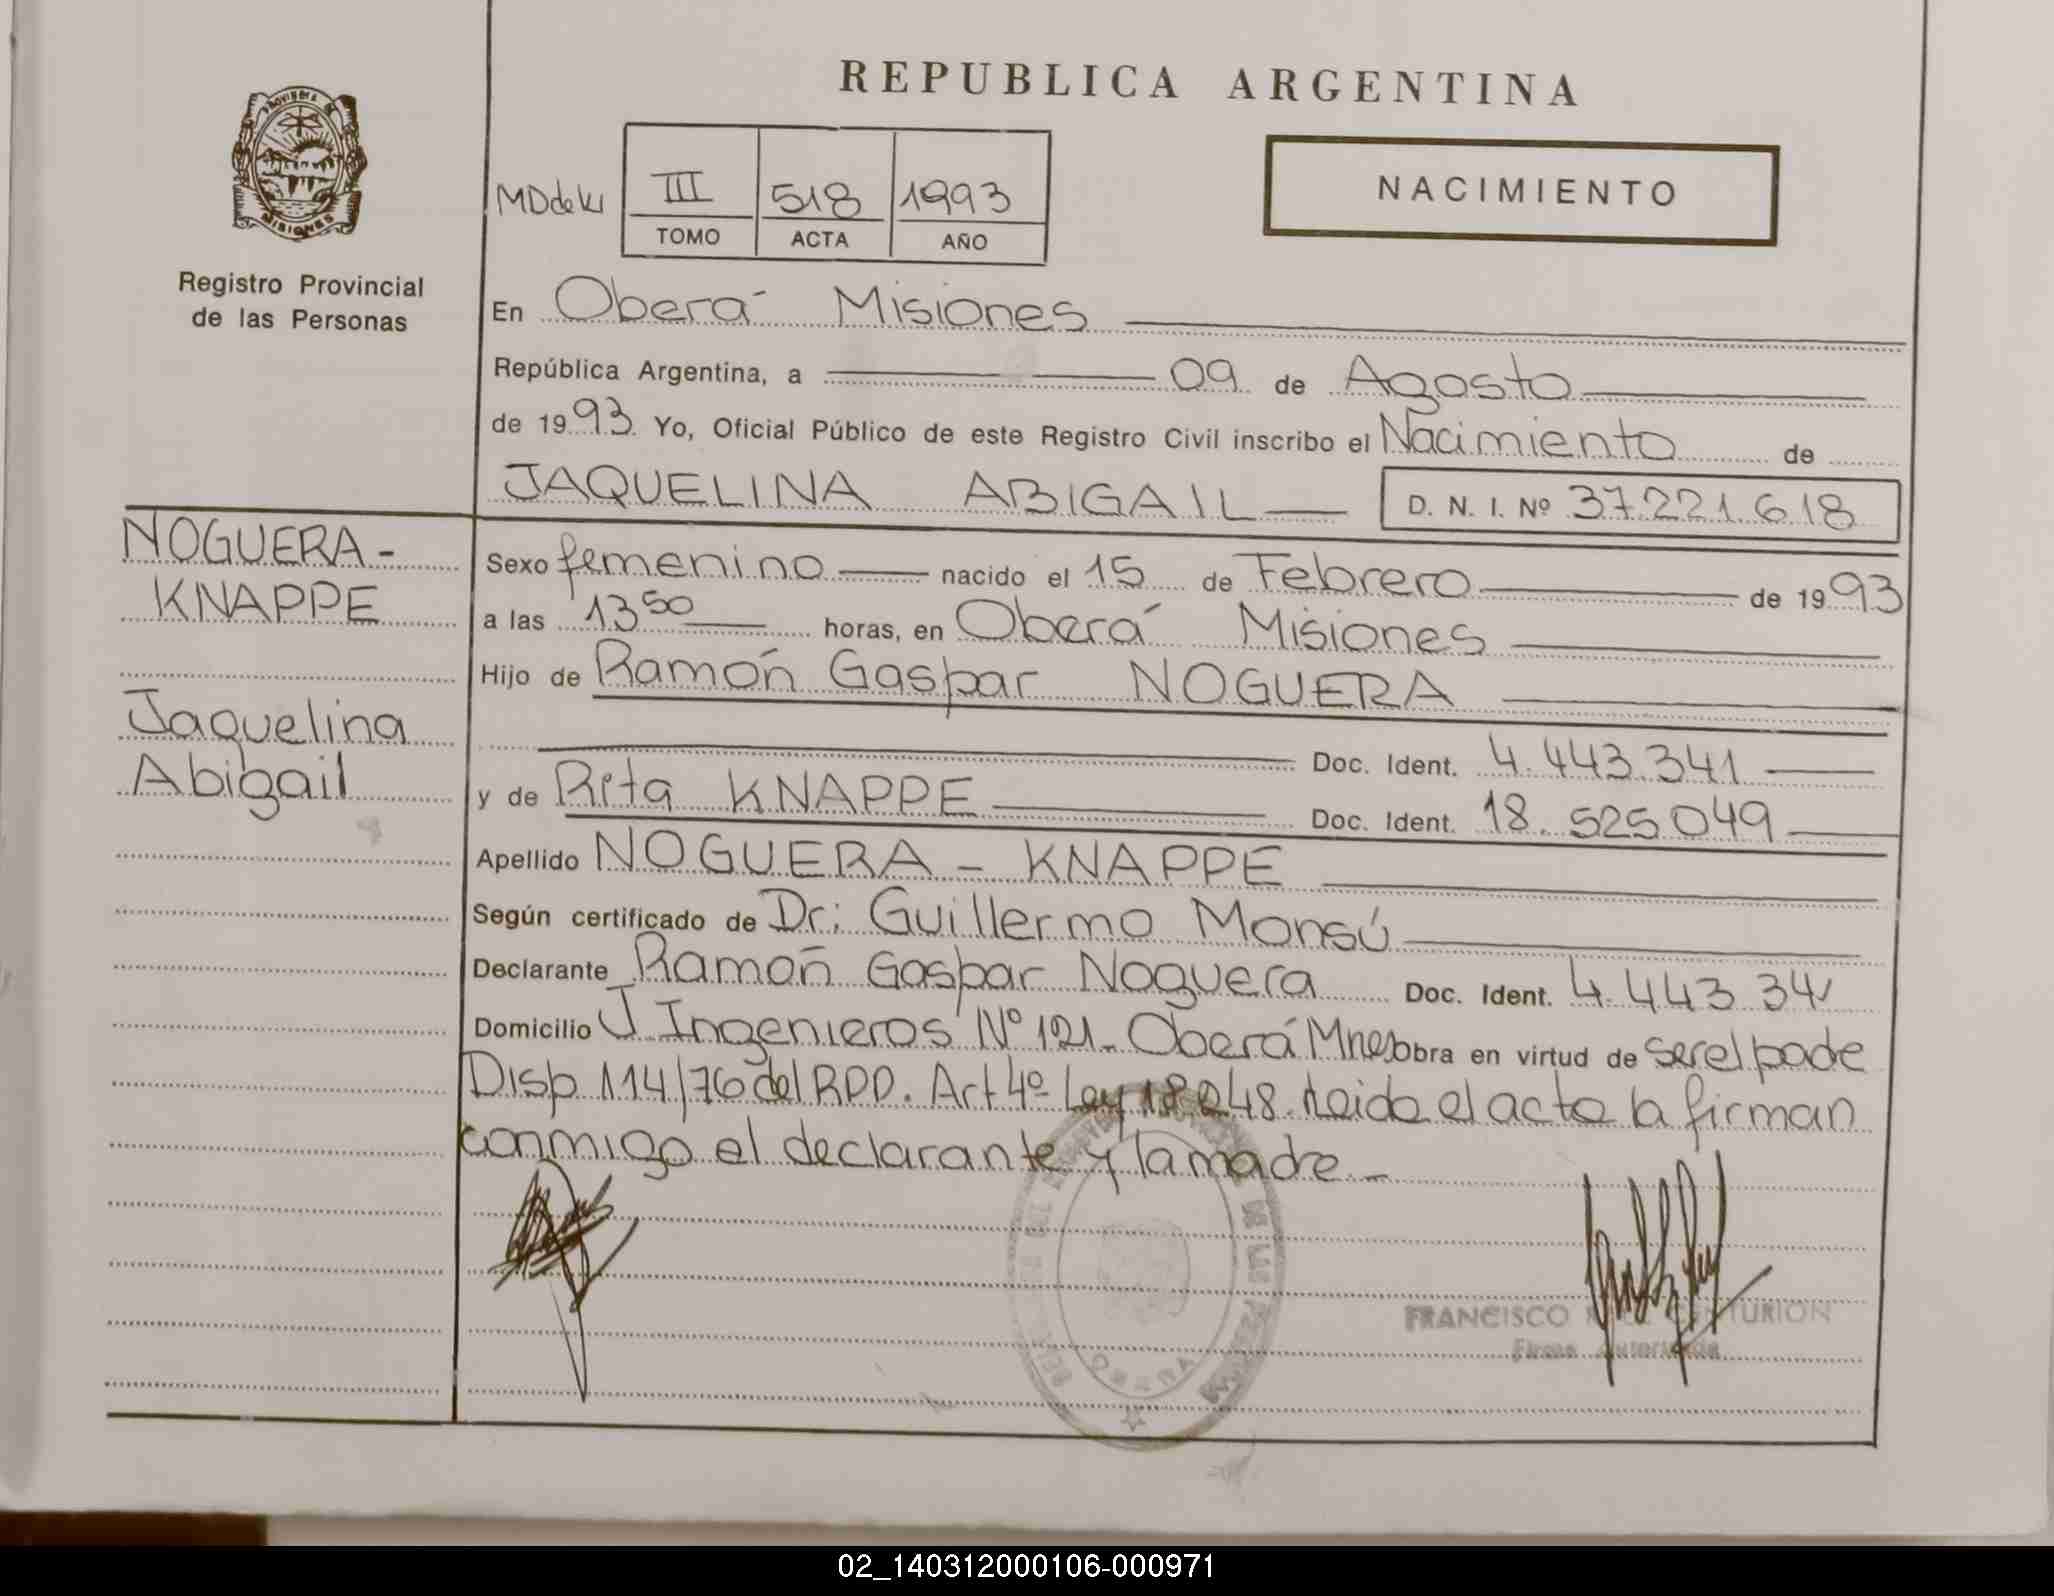 REPUBLICA ARGENTINA
PROVINCIA DE MISIONES
Registro Provincial
de las Personas
III 518 1993
TOMO ACTA AÑO
NACIMIENTO
En Oberá Misiones
República Argentina, a 09 de Agosto
de 1993 Yo, Oficial Público de este Registro Civil inscribo el Nacimiento de
JAQUELINA ABIGAIL D. N. I. Nº 37.221.618
NOGUERA-
KNAPPE
Jaquelina
Abigail
Sexo femenino nacido el 15 de Febrero de 1993
a las 13 50 horas, en Oberá Misiones
Hijo de Ramón Gaspar NOGUERA
Doc. Ident. 4.443.341
y de Rita KNAPPE Doc. Ident. 18.525049
Apellido NOGUERA - KNAPPE
Según certificado de Dr: Guillermo Monsú
Declarante Ramón Gaspar Noguera Doc. Ident. 4.443.341
Domicilio J. Ingenieros Nº 121. Oberá Mnes obra en virtud de ser el padre
Disp. 114/76 del RPP. Art 4º Ley 18.248. Leido el acto la firman
conmigo el declarante y la madre -
DE LAS PERSONAS
FRANCISCO CENTURION
Firma Autorizada
02_140312000106-000971